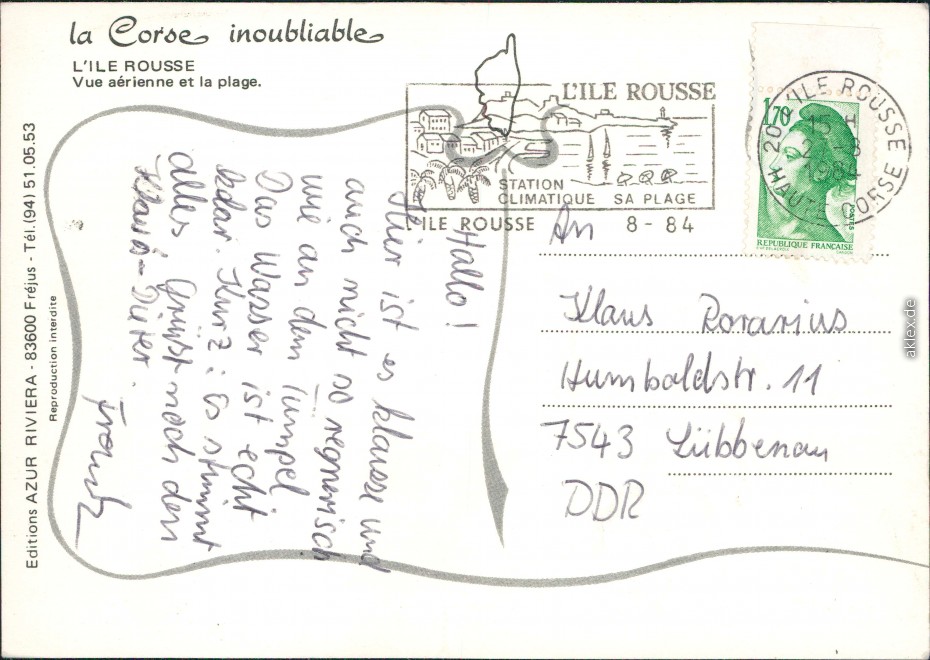 la Corse inoubliable
L'ILE ROUSSE
Vue aérienne et la plage.
Editions AZUR RIVIERA - 83600 Fréjus - Tél.(94) 51.05.53
Reproduction interdite
L'ILE ROUSSE
STATION
CLIMATIQUE SA PLAGE
L'ILE ROUSSE 8-84
20 L'ILE ROUSSE
15 H
1984
HAUTE CORSE
1,70
POSTES
REPUBLIQUE FRANCAISE
Hallo!
Hier ist es klasse und
auch nicht so regnerisch
wie an dem Tümpel
Das Wasser ist echt
klar. Kurz: Es stimmt
alles. Grüßt noch den
Klaus-Dieter.
An
Klaus Rorarius
Humboldstr. 11
7543 Lübbenau
DDR
aklex.de